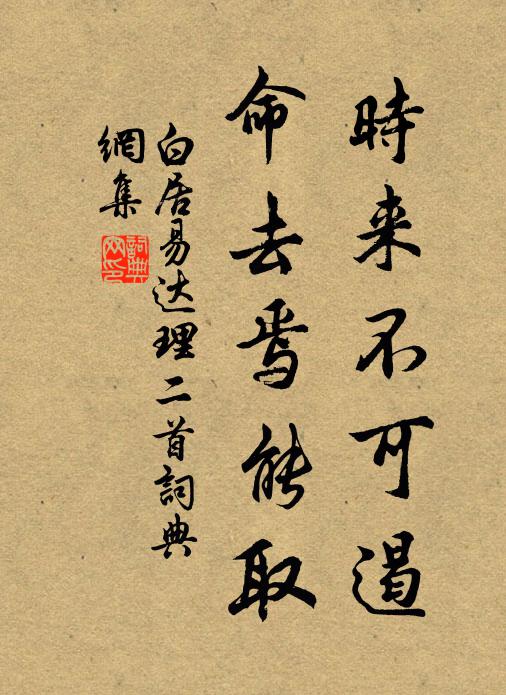 時来不可遏
命去焉能取
白居易达理二首詞典
網集
詞典
网印